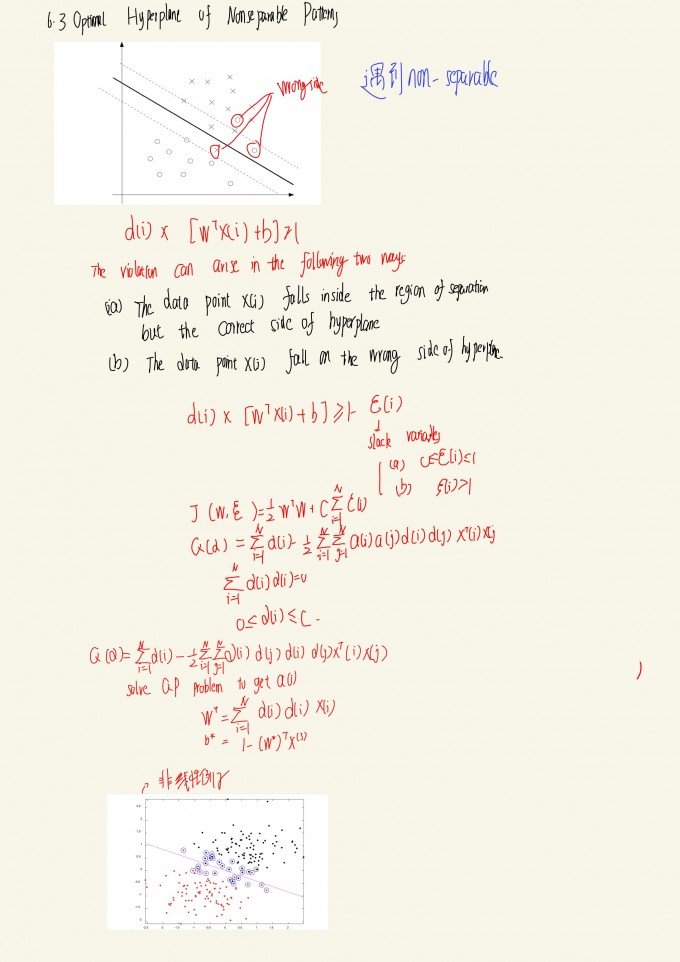 6.3 Optimal Hyperplane of Nonseparable Patterns
wrong side
遇到 non-separable
d(i) × [wᵀx(i)+b]≥1
The violation can arise in the following two ways
(a) The data point x(i) falls inside the region of separation
but the correct side of hyperplane
(b) The data point x(i) fall on the wrong side of hyperplane
d(i) × [wᵀx(i)+b]≥1- ξ(i)
slack variables
(a) 0≤ξ(i)≤1
(b) ξ(i)>1
J(w,ξ)=½wᵀw+C∑ᵢ₌₁ᴺ ξ(i)
Q(α) = ∑ᵢ₌₁ᴺ α(i)- ½∑ᵢ₌₁ᴺ∑ⱼ₌₁ᴺ α(i)α(j)d(i)d(j) xᵀ(i)x(j
∑ᵢ₌₁ᴺ α(i)d(i)=0
0≤α(i)≤C.
Q(α)=∑ᵢ₌₁ᴺ α(i) - ½∑ᵢ₌₁ᴺ∑ⱼ₌₁ᴺ α(i) α(j) d(i) d(j)xᵀ(i)x(j)
solve QP problem to get α(i)
w* = ∑ᵢ₌₁ᴺ α(i) d(i) x(i)
b* = 1-(w*)ᵀx⁽ˢ⁾
非线性例子